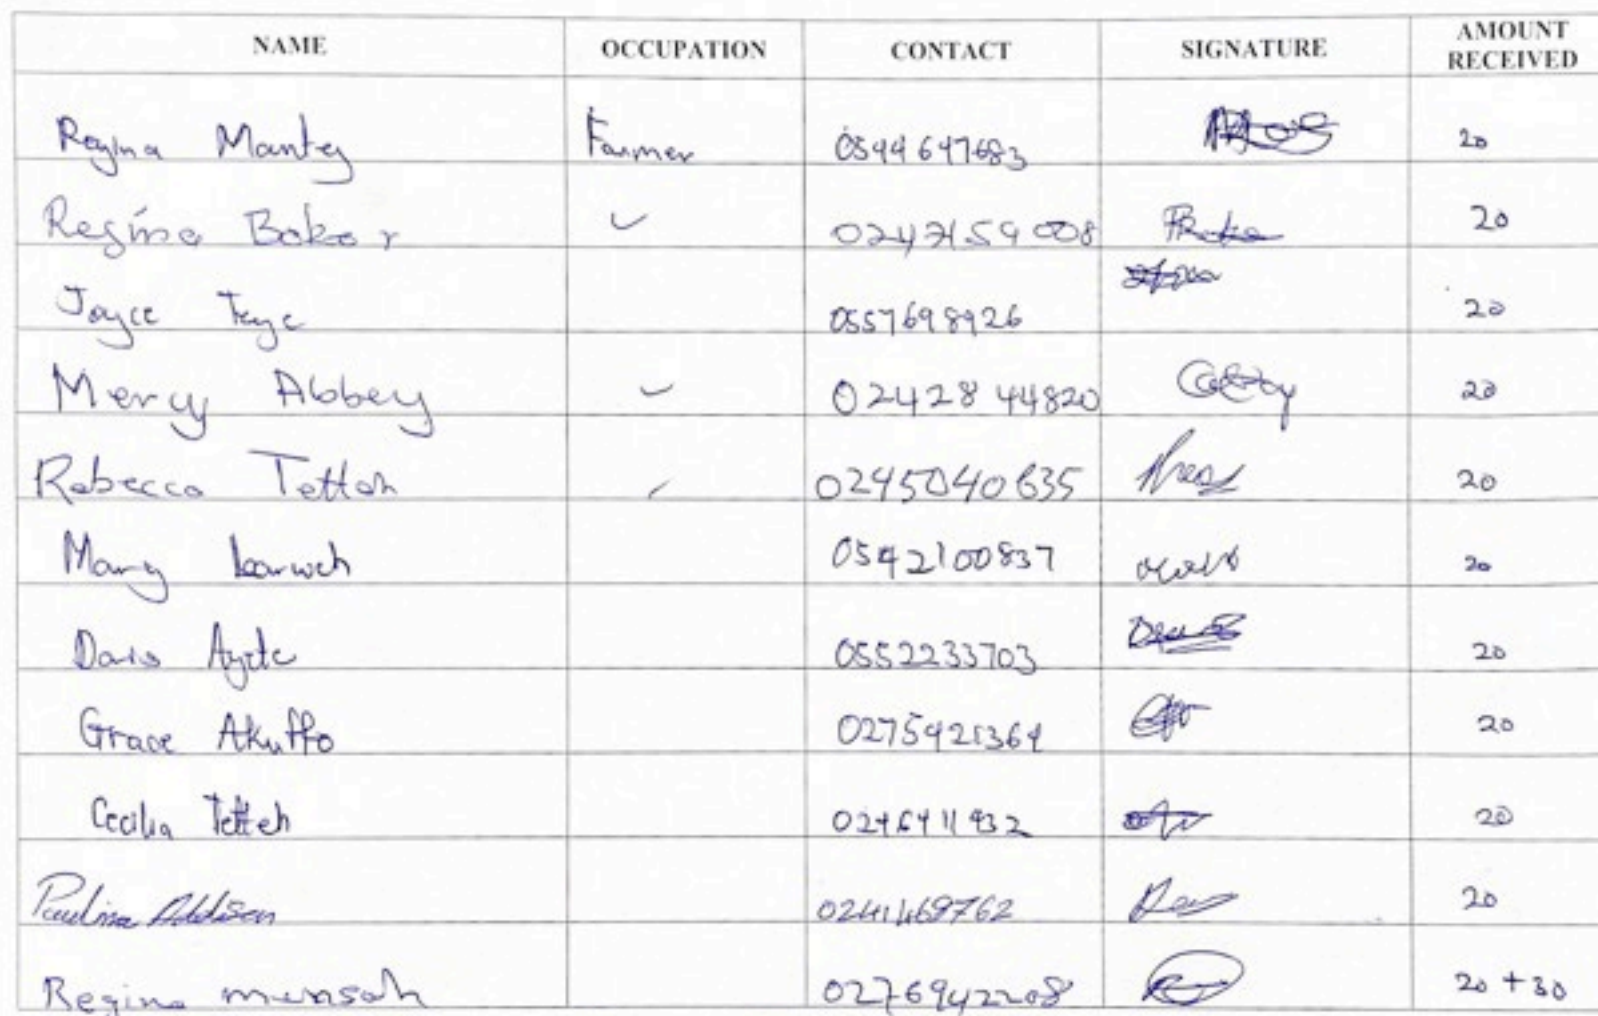 NAME OCCUPATION CONTACT SIGNATURE AMOUNT RECEIVED
Regina Mantey Farmer 0544647683 20
Regina Boker ✓ 0247159008 20
Joyce Teye 0557698926 20
Mercy Abbey ✓ 0242844820 20
Rebecca Tetteh 0245040635 20
Mary 0542100837 20
Doris Ayete 0552233703 20
Grace Akuffo 0275421364 20
Cecilia Tetteh 0246411932 20
Paulina Addison 0241469762 20
Regina mensah 0276942208 20 + 30